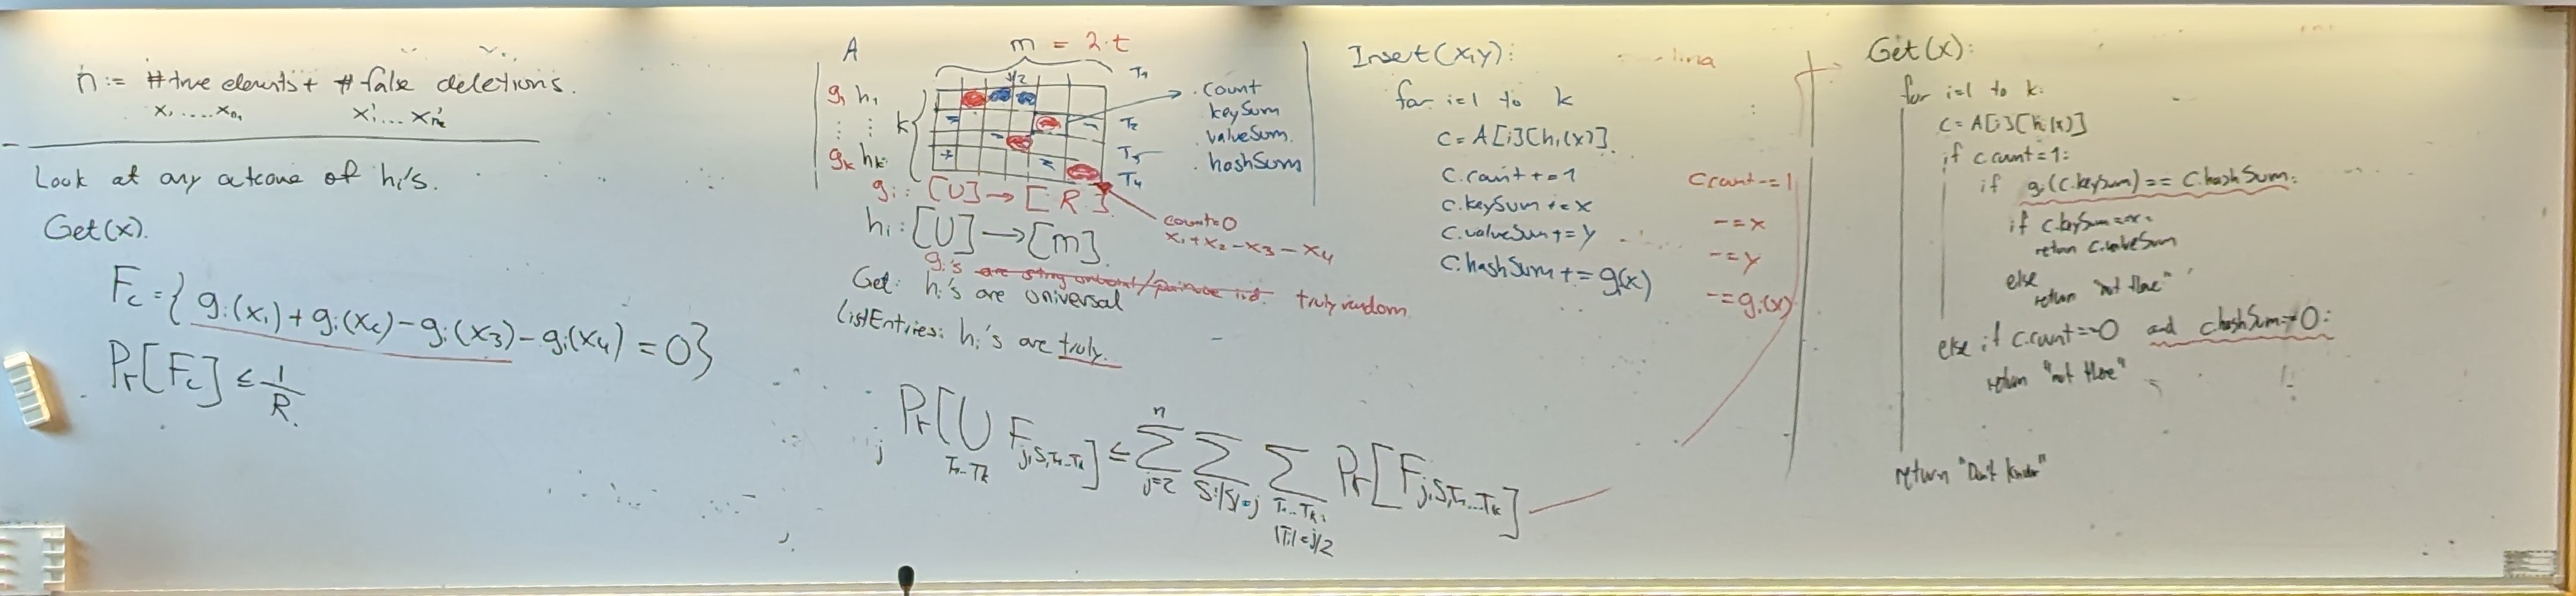 n := #true elements + #false deletions.
x₁ .... xₙ₁ x₁' ... xₙ₂'
Look at any outcome of hᵢ's.
Get(x).
F_c = { gᵢ(x₁) + gᵢ(x₂) - gᵢ(x₃) - gᵢ(x₄) = 0 }
Pr[F_c] ≤ 1/R.
A
m = 2·t
j/2
T₁
T₂
T₃
T₄
g₁ h₁
⋮ ⋮ k
g_k h_k
· count
keySum
· valueSum.
· hashSum
gᵢ : [U] → [R].
count=0
x₁+x₂-x₃-x₄
hᵢ : [U] → [m].
gᵢ's truly random
Get: hᵢ's are universal
listEntries: hᵢ's are truly.
j Pr[ ⋃_{T₁..T_k} F_{j,S,T₁..T_k} ] ≤ Σ_{j=2}^{n} Σ_{S:|S|=j} Σ_{T₁..T_k: |Tᵢ|=j/2} Pr[F_{j,S,T₁...T_k}]
Insert(x,y):
for i=1 to k
c = A[i][hᵢ(x)].
c.count += 1
c.keySum += x
c.valueSum += y
c.hashSum += gᵢ(x)
c.count -= 1
-= x
-= y
-= gᵢ(x)
Get(x):
for i=1 to k:
c = A[i][hᵢ(x)]
if c.count = 1:
if gᵢ(c.keySum) == c.hashSum:
if c.keySum == x:
return c.valueSum
else
return "not there"
else if c.count == 0 and c.hashSum == 0:
return "not there"
return "Don't know"